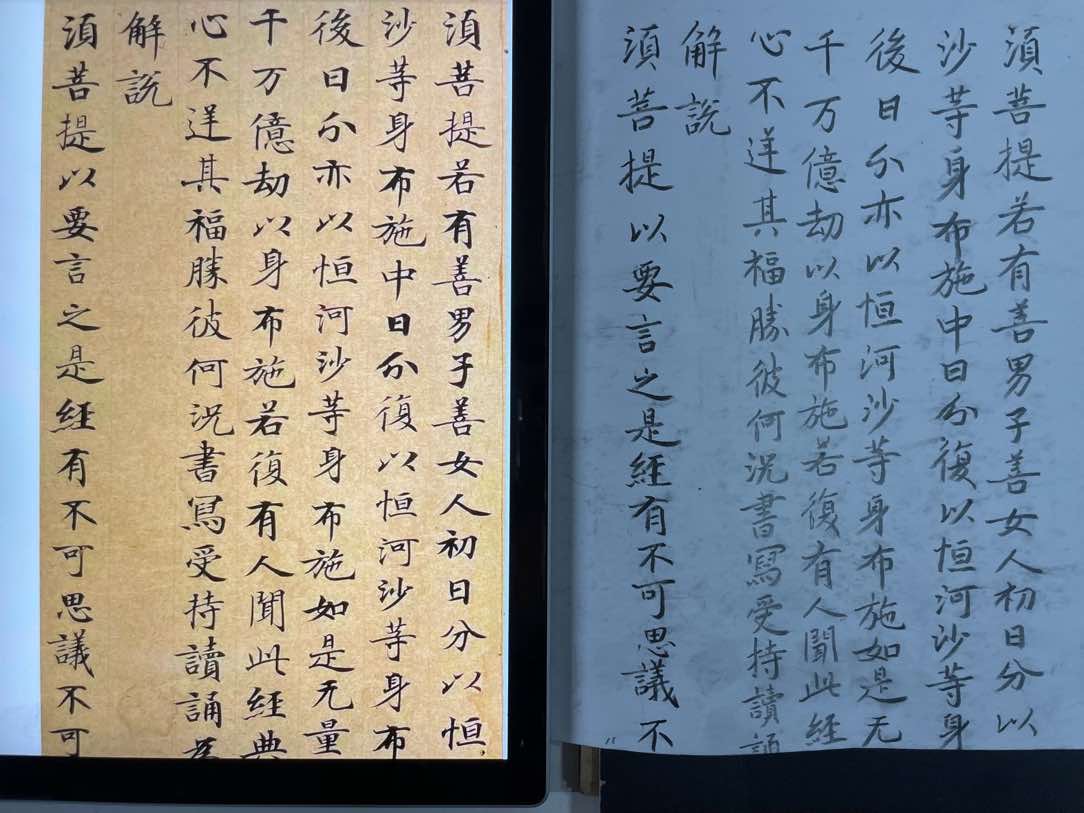 須菩提若有善男子善女人初日分以恒
沙等身布施中日分復以恒河沙等身布
後日分亦以恒河沙等身布施如是无量
千万億劫以身布施若復有人聞此經典
心不逆其福勝彼何況書寫受持讀誦為
解説
須菩提以要言之是經有不可思議不可
須菩提若有善男子善女人初日分以
沙等身布施中日分復以恒河沙等身
後日分亦以恒河沙等身布施如是无
千万億劫以身布施若復有人聞此經
心不逆其福勝彼何況書寫受持讀誦
解説
須菩提以要言之是經有不可思議不